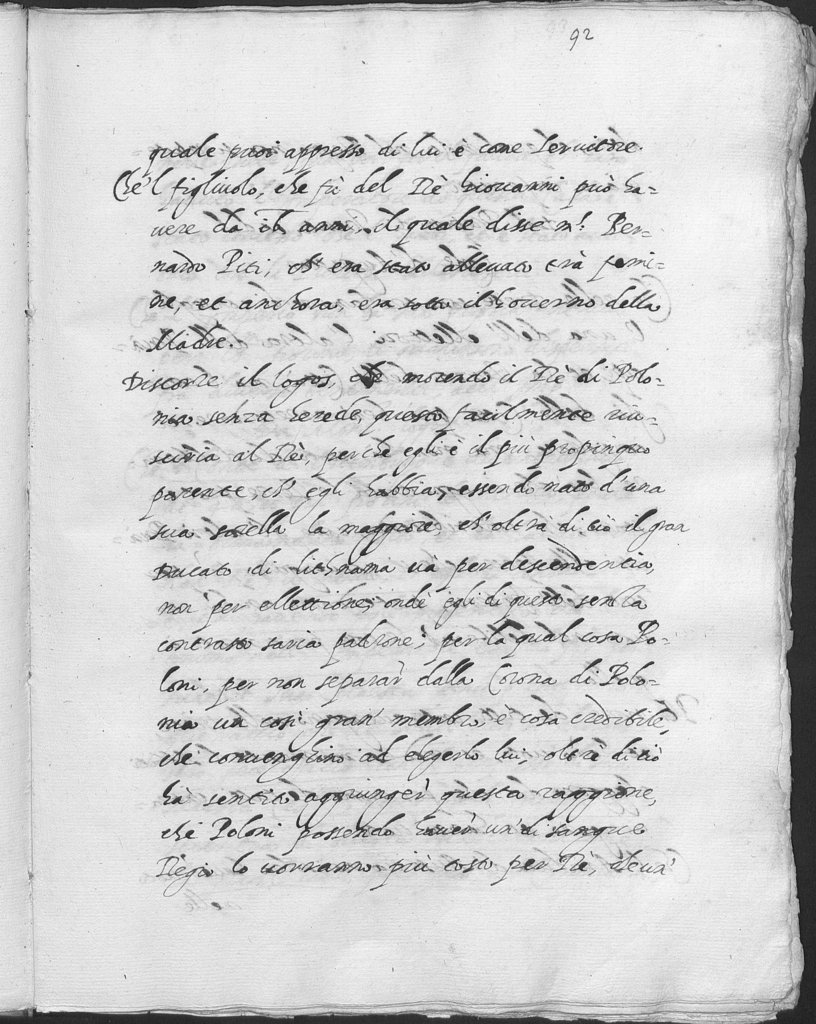 92
quale puoi appresso di lui è come servitore.
Che'l figliuolo, che fù del Rè Giovanni può ha-
vere da anni, il quale disse m.r Ber-
nardo Piti, ch'era stato allevato trà femi-
ne, et anchora, era sotto il governo della
Madre.
Discorre il logos, che morendo il Rè di Polo-
nia senza herede, questo facilmente riu-
sciria al Rè, perche egli è il più propinquo
parente, ch'egli habbia, essendo nato d'una
sua sorella la maggiore, ch'oltra di ciò il gran
Ducato di Lithuania và per descendentia,
non per ellettione, onde egli di questo senza
contrasto saria padrone, per la qual cosa Po-
loni, per non separar dalla Corona di Polo-
nia un così gran membro è cosa credibile,
che convenghino ad elegerlo lui, oltre di ciò
hà sentito aggiunger questa raggione,
che Poloni possendo haver un di sangue
Regio lo vorranno più tosto per Rè, che un'